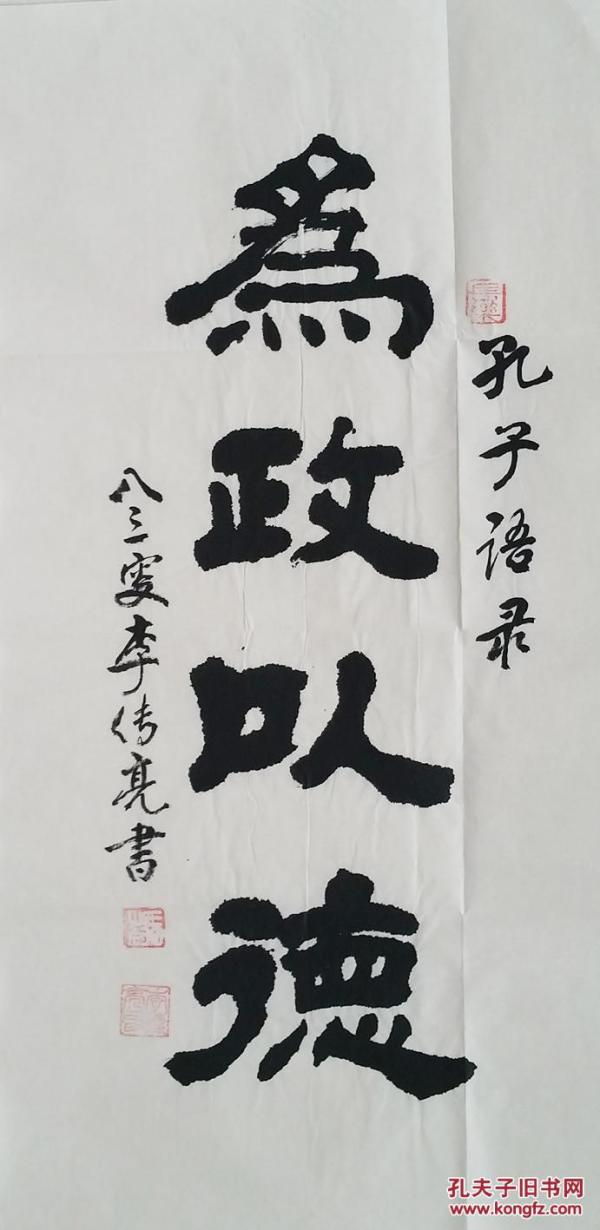 孔子语录
為政以德
八三叟李传亮書
孔夫子旧书网
www.kongfz.com